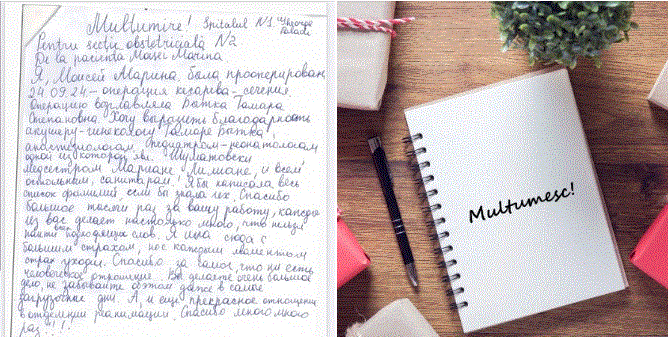 Multumire! Spitalul N1. "Gheorghe Paladi
Pentru secția obstetricială N2
De la pacienta Moisei Marina
Я, Моисей Марина, была прооперирован
24.09.24 – операция кесарева-сечения.
Операцию возглавляла Вытка Тамара
Степановна. Хочу выразить благодарность
акушеру-гинекологу Тамаре Вытка,
анастезиологам, педиатром-неонатологам
одной из которой явл. Шумановски
медсестром Мариане, Лилиане, и всем
остольным, санитарам! Я бы написала весь
список фамилий если бы знала их. Спасибо
большое тысячи раз за вашу работу, каждый
из вас делает настолько много, что нельзя
найти подходящих слов. Я шла сюда с
большим страхом, но с каждым моментом
страх уходил. Спасибо за самое, что ни есть
человеческое отношение. Вы делаете очень большое
дело, не забывайте об этом даже в самые
загрузочные дни. А, и еще прекрасное отношение
в отделении реанимации. Спасибо много много
раз!!!
Multumesc!